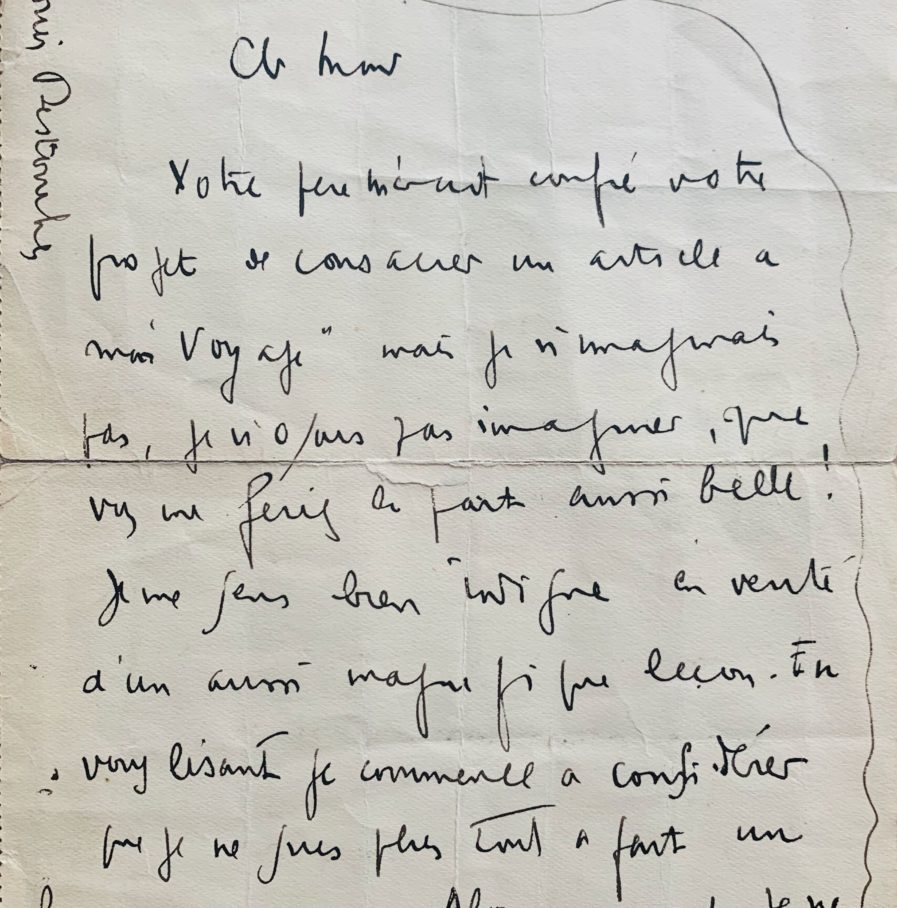 Votre père m'avait confié votre
projet de consacrer un article a
mon "Voyage" mais je n'imaginais
pas, je n'osais pas imaginer, que
vous me feriez la part aussi belle!
Je me sens bien indigne en verité
d'un aussi magnifique leçon. En
vous lisant je commence a considérer
que je ne suis plus tout a fait un